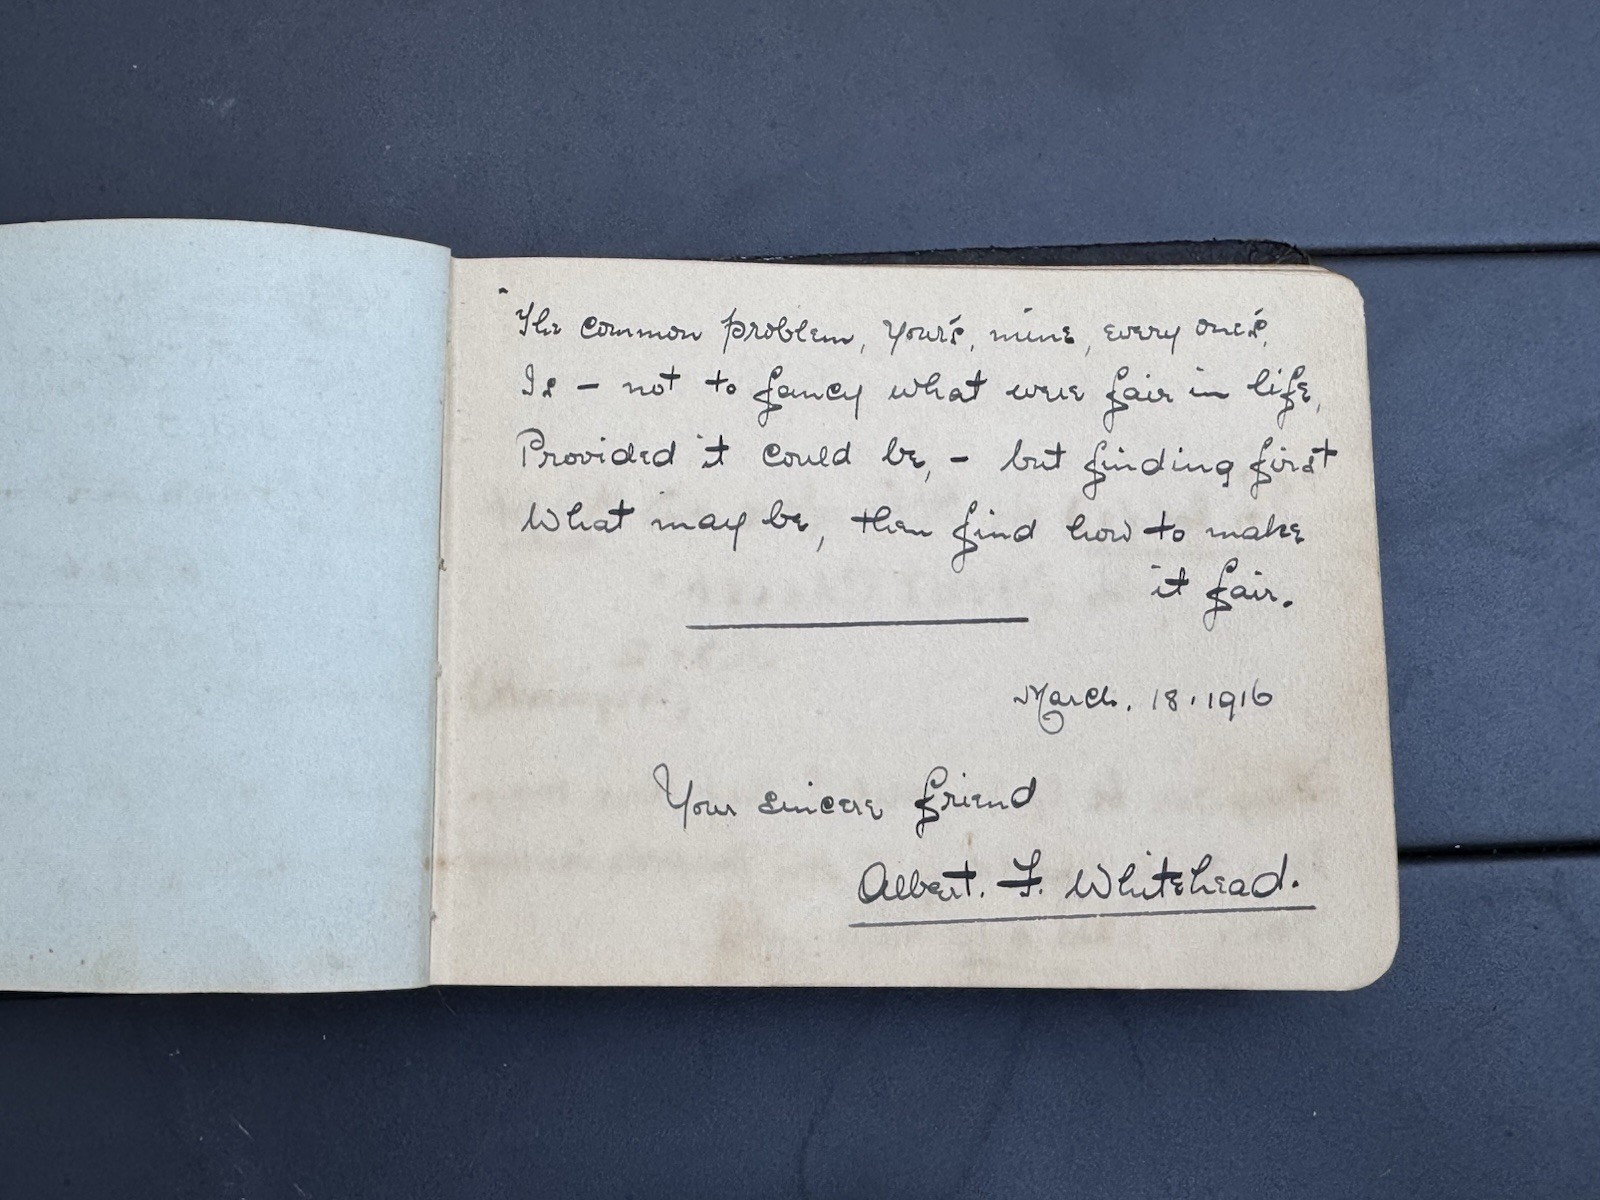 "The common problem, your's, mine, every one's,
Is - not to fancy what were fair in life,
Provided it could be, - but finding first
What may be, then find how to make
it fair.
March. 18. 1916
Your sincere friend
Albert. F. Whitehead.